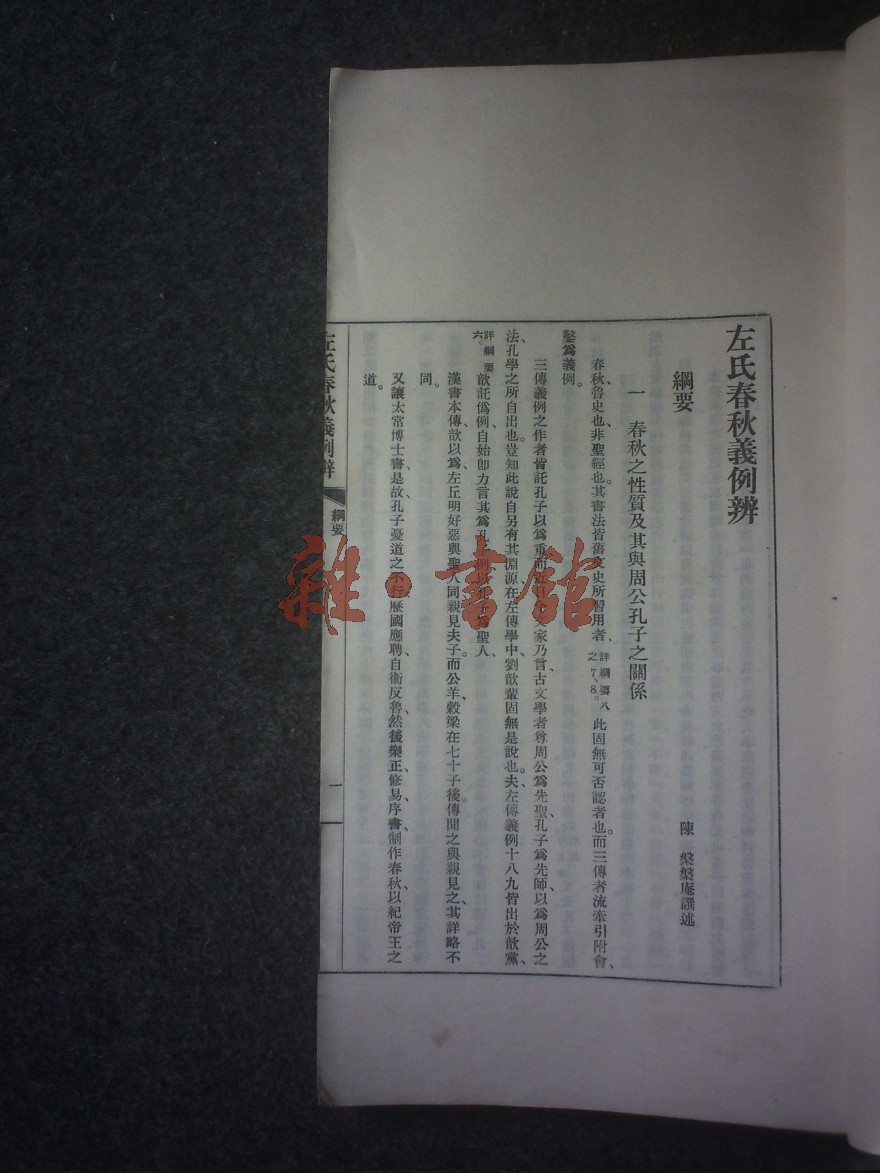 左氏春秋義例辨
綱要
陳槃槃庵譔述
一 春秋之性質及其與周公孔子之關係
春秋、魯史也、非聖經也。其書法皆舊文史所習用者、詳綱要八之7、8。此固無可否認者也。而三傳者流牽引附會、
鑿爲義例。
三傳義例之作者皆託孔子以爲重而 文家乃言古文學者尊周公爲先聖、孔子爲先師、以爲周公之
法、孔學之所自出也。豈知此說自另有其淵源、在左傳學中、劉歆輩固無是說也。夫左傳義例十八九皆出於歆黨、
詳綱要六。歆託僞例自始卽力言其爲孔子例、以孔子爲聖人、
漢書本傳、歆以爲左丘明好惡與聖人同、親見夫子。而公羊穀梁在七十子後。傳聞之與親見之、其詳略不
同。
又讓太常博士書、是故孔子憂道之不行、歷國應聘、自衞反魯、然後樂正、修易、序書、制作春秋、以紀帝王之
道。
左氏春秋義例辨
綱要
一
雜·書館